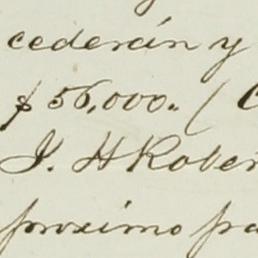 cederán y
$56,000. (
J. H Rober
proximo pa